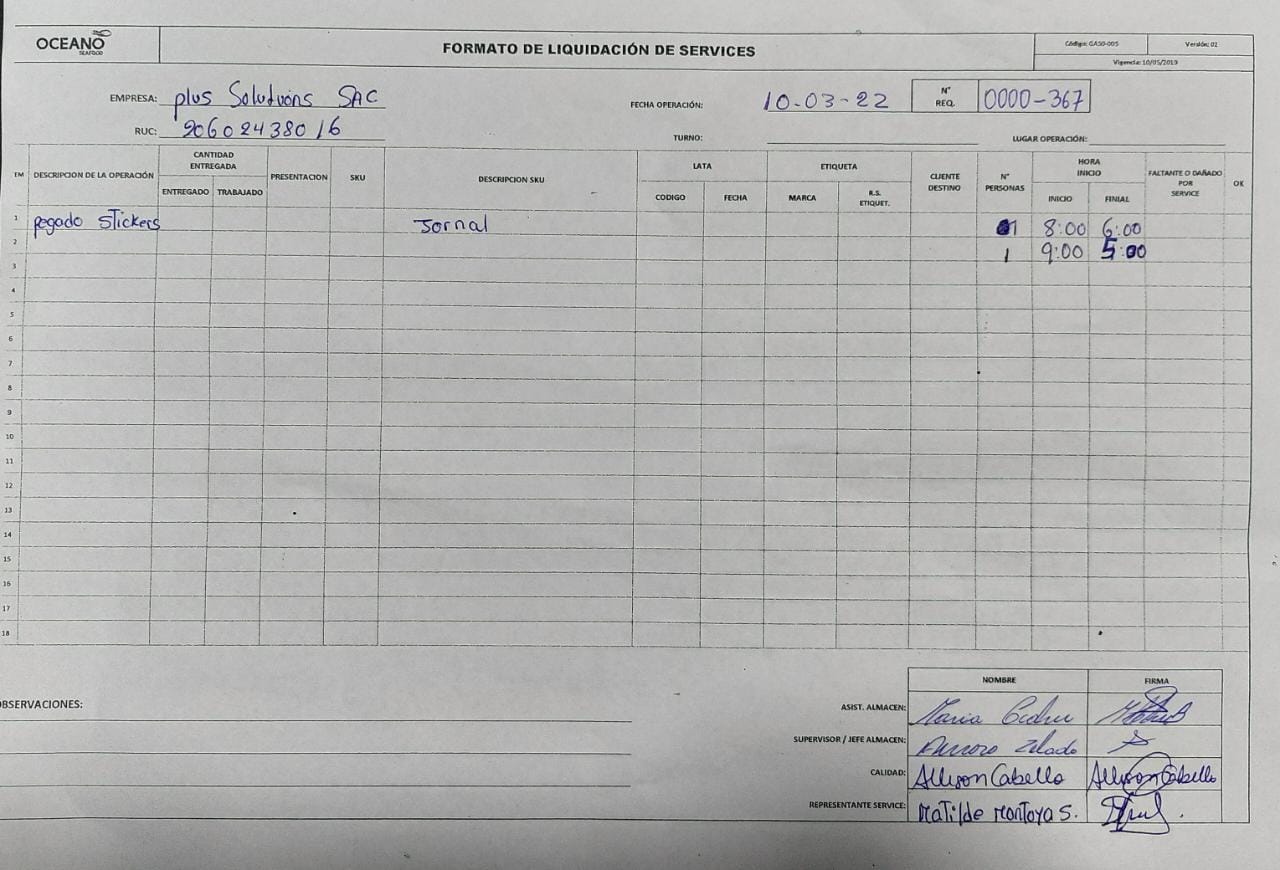 OCEANO
SEAFOOD
FORMATO DE LIQUIDACIÓN DE SERVICES
Código: GASO-005 Versión: 02
Vigencia: 10/05/2019
EMPRESA: plus Solutions SAC
FECHA OPERACIÓN: 10-03-22
N° REQ. 0000-367
RUC: 20602438016
TURNO:
LUGAR OPERACIÓN:
TEM DESCRIPCION DE LA OPERACIÓN CANTIDAD ENTREGADA PRESENTACION SKU DESCRIPCION SKU LATA ETIQUETA CLIENTE DESTINO N° PERSONAS HORA INICIO FALTANTE O DAÑADO POR SERVICE OK
ENTREGADO TRABAJADO CODIGO FECHA MARCA R.S. ETIQUET. INICIO FINIAL
1 pegado stickers Jornal 1 8:00 6:00
2 1 9:00 5:00
3
4
5
6
7
8
9
10
11
12
13
14
15
16
17
18
NOMBRE FIRMA
OBSERVACIONES:
ASIST. ALMACEN: Maria
SUPERVISOR / JEFE ALMACEN:
CALIDAD: Allison Cabello Allison Cabello
REPRESENTANTE SERVICE: Matilde Montoya S.